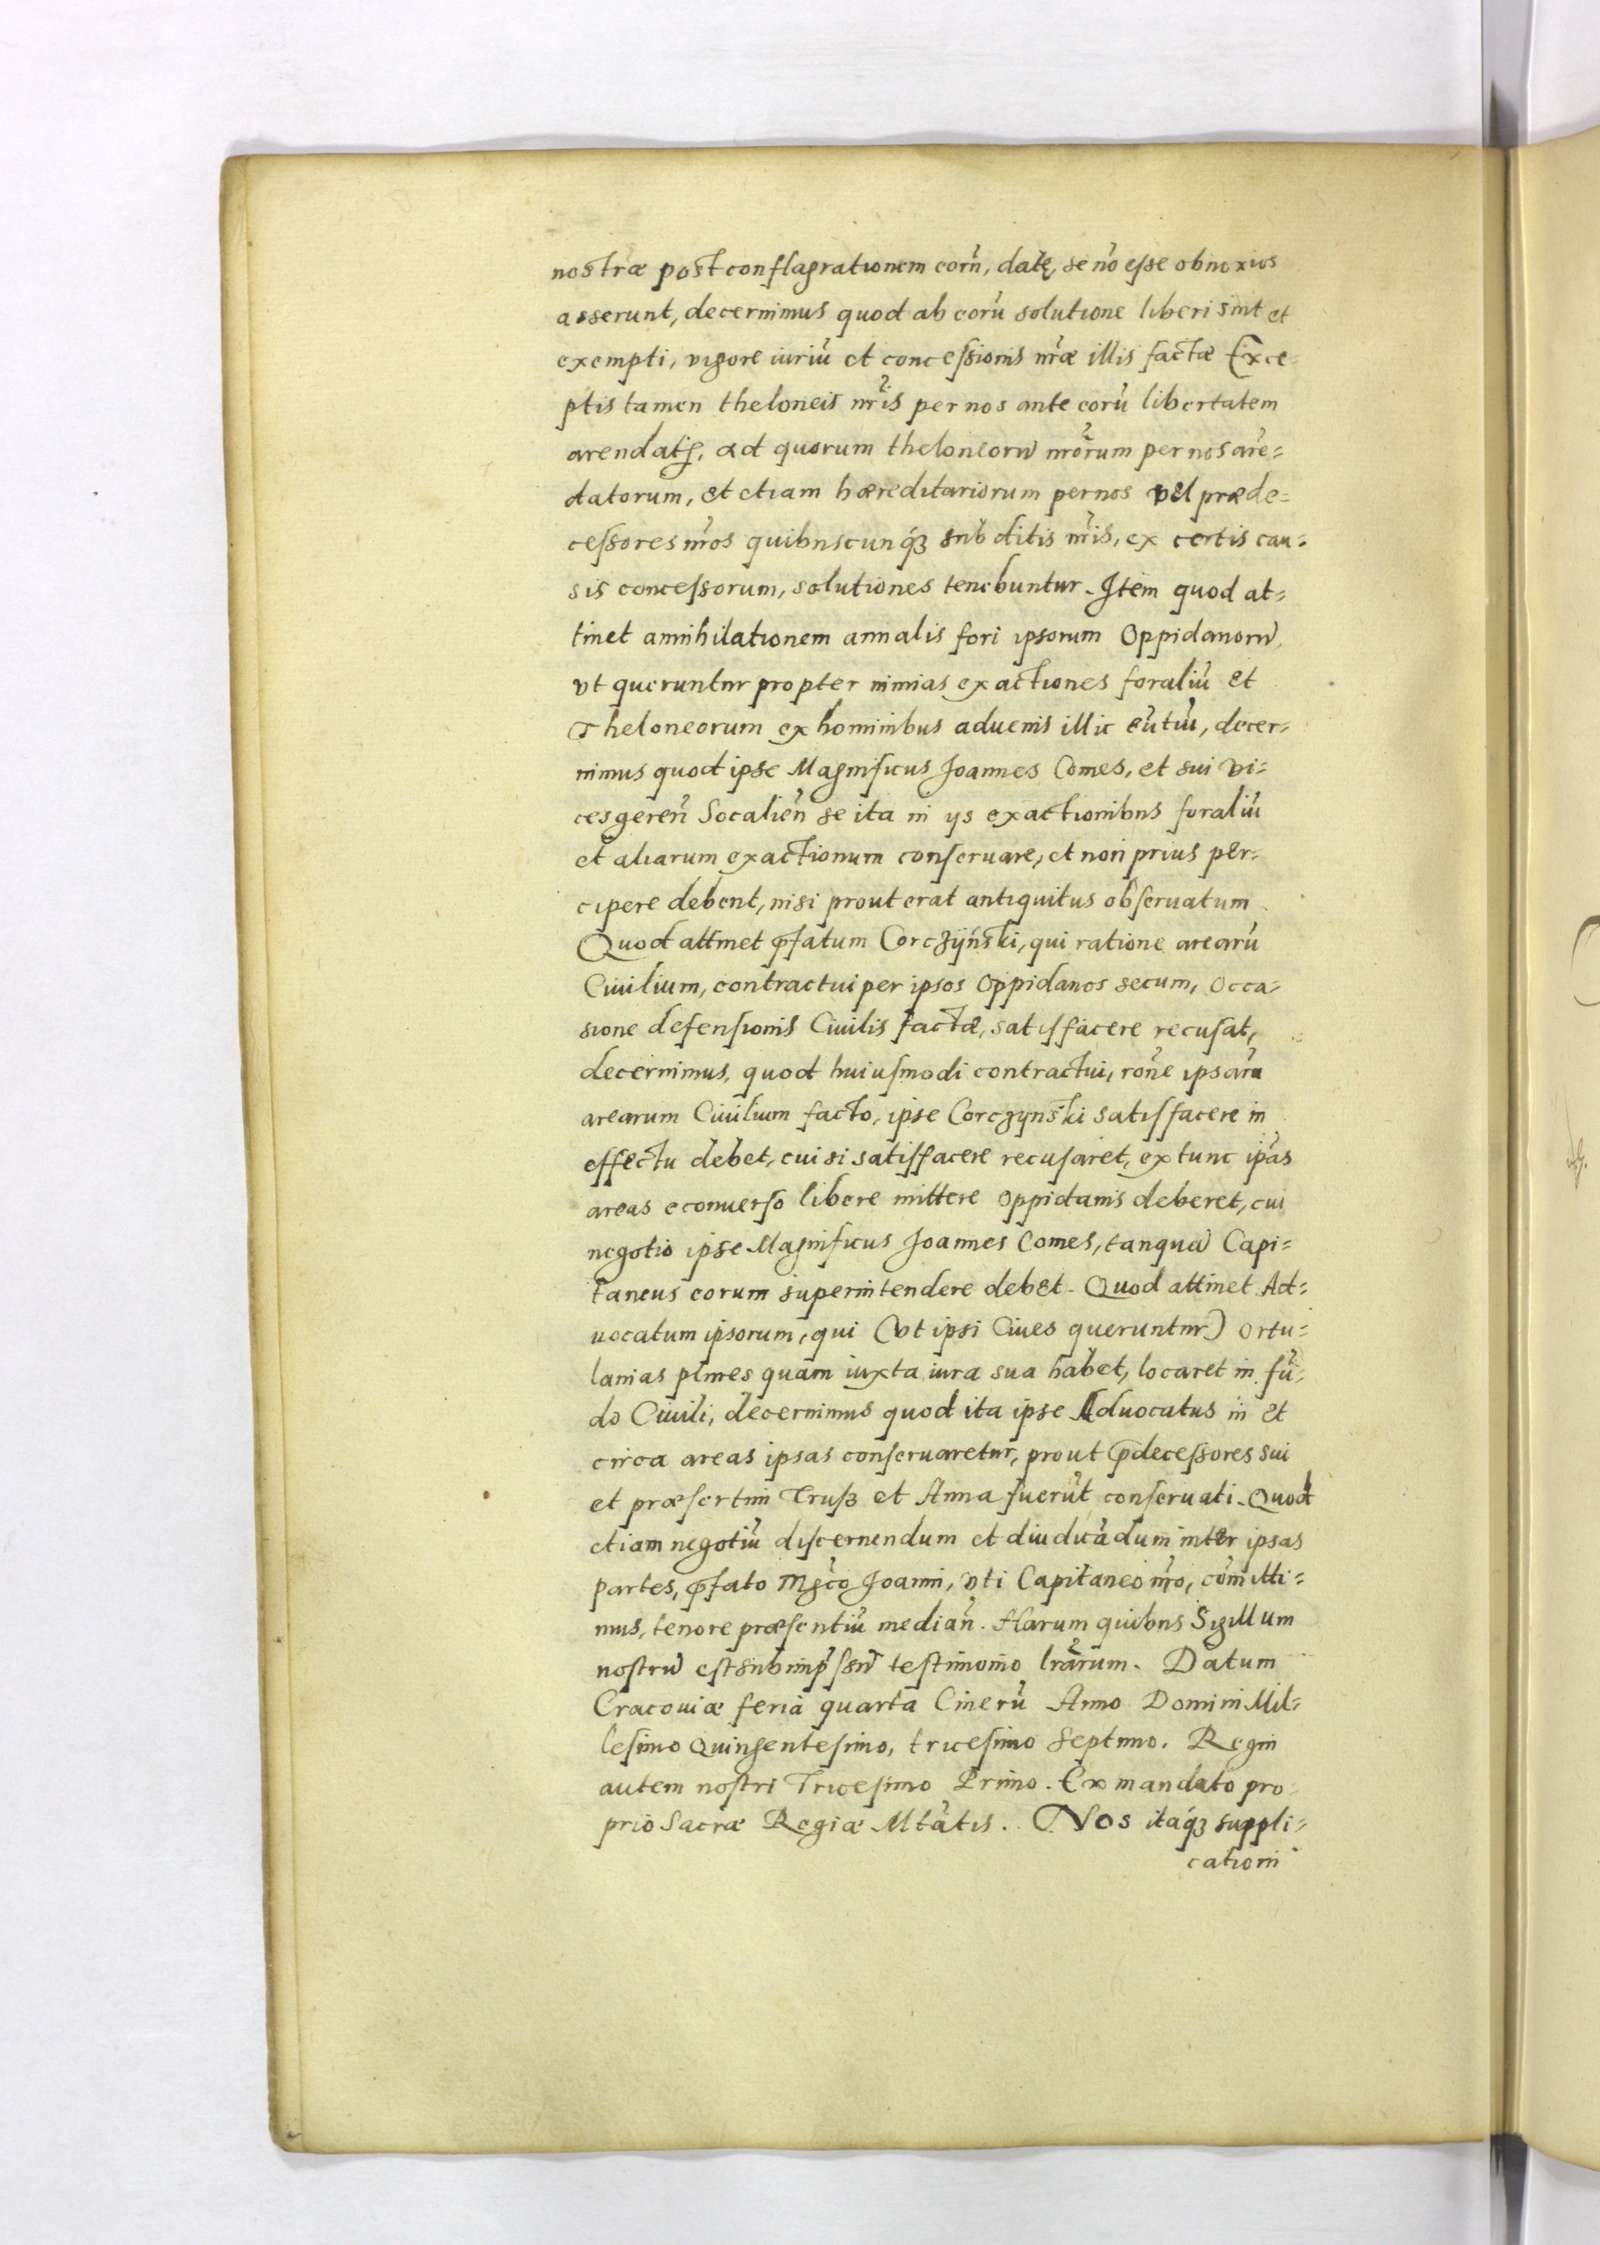 nostræ post conflagrationem eorũ, datę, se nõ esse obnoxios
asserunt, decernimus quod ab eorũ solutione liberi sint et
exempti, vigore iuriũ et concessionis nr̃æ illis factæ Exce-
ptis tamen theloneis nr̃is per nos ante eorũ libertatem
arendatis, ad quorum theloneorũ nr̃orum per nos arẽ=
datorum, et etiam hæreditariorum per nos vel præde=
cessores nr̃os quibuscunq́ꝫ subditis nr̃is, ex certis cau=
sis concessorum, solutiones tenebuntur. Item quod at=
tinet annihilationem annalis fori ipsorum Oppidanorũ,
vt queruntur propter nimias exactiones foraliũ et
Theloneorum ex hominibus aduenis illic eũtiũ, decer=
nimus quod ipse Magnificus Joannes Comes, et sui vi=
cesgereñ Socalieñ se ita in ijs exactionibus foraliũ
et aliarum exactionum conseruare, et non prius per=
cipere debent, nisi prout erat antiquitus obseruatum
Quod attinet p̃fatum Corczÿński, qui ratione arearũ
Ciuilium, contractui per ipsos Oppidanos secum, Occa=
sione defensionis Ciuilis factæ, satisfacere recusat,
decernimus, quod huiusmodi contractui, rõne ipsarũ
arearum Ciuilium facto, ipse Corczynski satisfacere in
effectu debet, cui si satisfacere recusaret, extunc ip̃as
areas econuerso libere mittere Oppidanis deberet, cui
negotio ipse Magnificus Joannes Comes, tanquã Capi=
taneus eorum superintendere debet. Quod attinet Ad=
uocatum ipsorum, qui (vt ipsi Ciues queruntur) Ortu=
lanias pl̃ures quam iuxta iura sua habet, locaret in fũ=
do Ciuili, decernimus quod ita ipse Aduocatus in et
circa areas ipsas conseruaretur, prout p̃decessores sui
et præsertim Trusz et Anna fuerũt conseruati. Quod
etiam negotiũ discernendum et diiudicãdum inter ipsas
partes, p̃fato Mgc̃o Joanni, vti Capitaneo nr̃o, cõmitti=
mus, tenore præsentiũ medianñ. Harum quibus Sigillum
nostrũ est subimp̃ssũ testimonio lr̃arum. Datum
Cracouiæ feria quarta Cinerũ Anno Domini Mil=
lesimo Quingentesimo, tricesimo Septimo. Regni
autem nostri Tricesimo Primo. Ex mandato pro
prio Sacræ Regiæ Mtãtis. Nos itaq́ꝫ suppli=
cationi